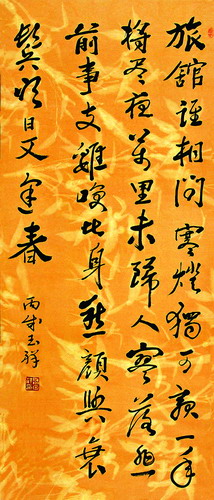 旅舘誰相問寒燈獨可親一年
將盡夜萬里未歸人寥落悲
前事支離笑此身愁顏與衰
鬢明日又逢春
丙戌玉祥